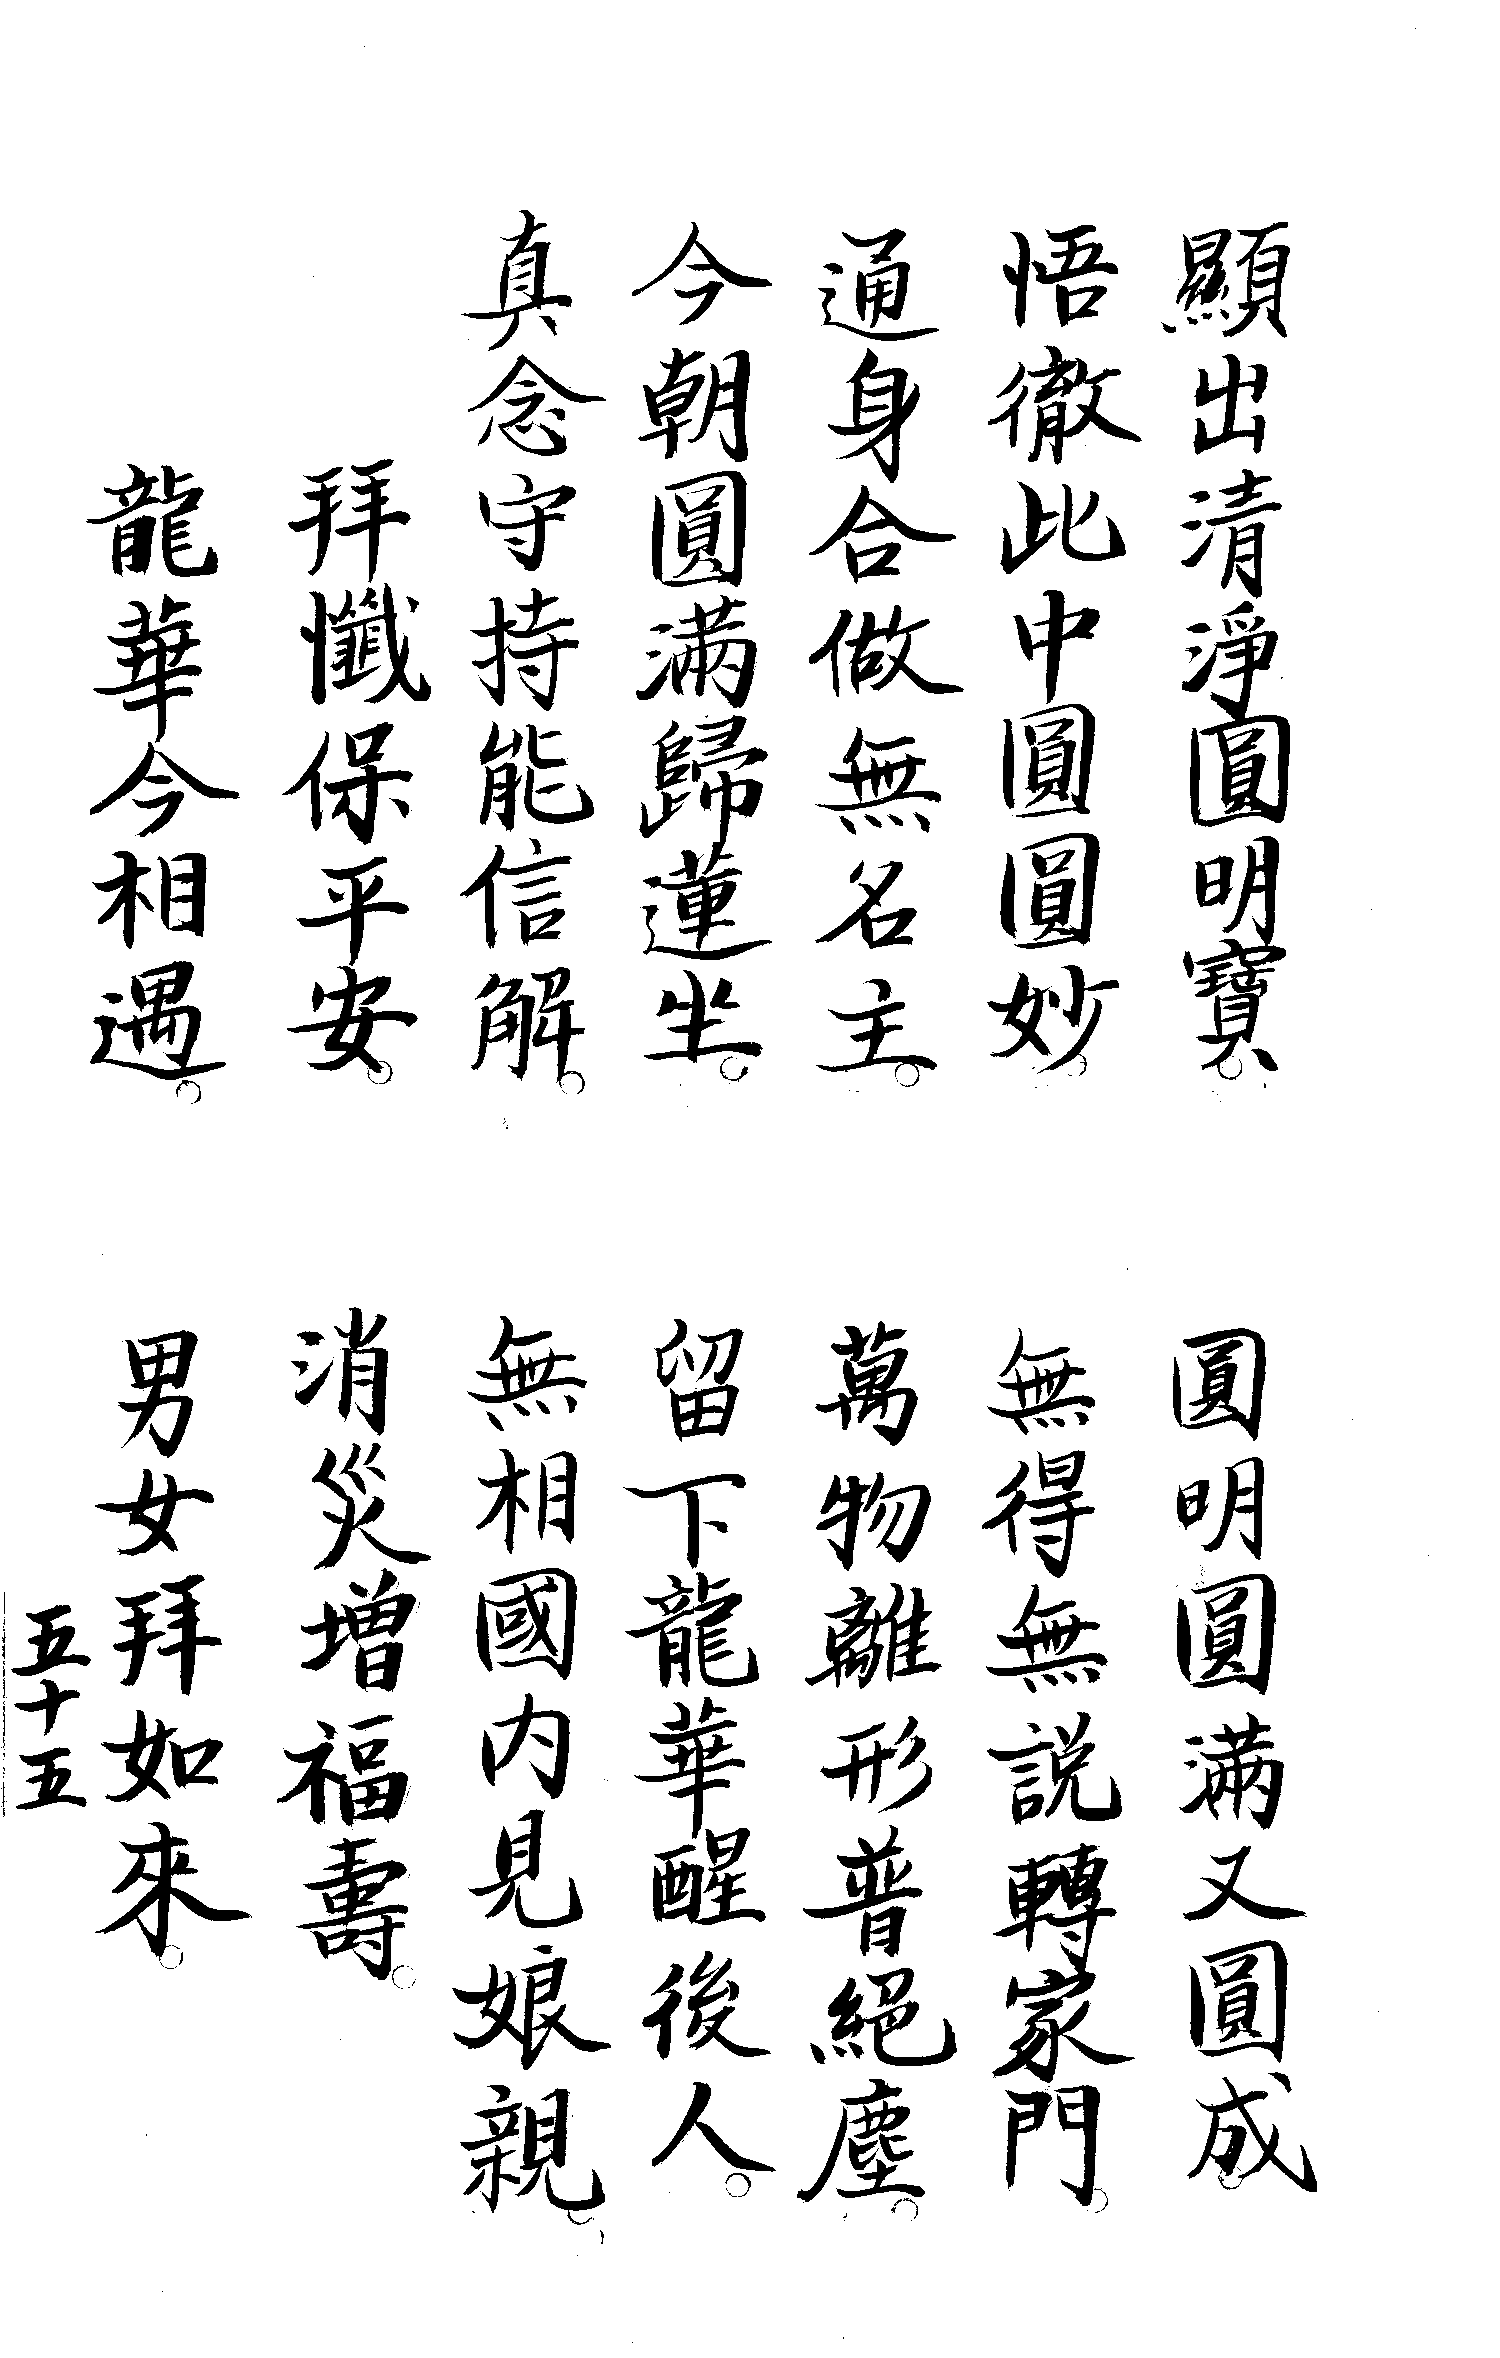 顯出清淨圓明寶。圓明圓滿又圓成。
悟徹此中圓圓妙。無得無説轉家門。
通身合做無名主。萬物離形普絕塵。
今朝圓滿歸蓮坐。留下龍華醒後人。
真念守持能信解。無相國内見娘親。
拜懺保平安。消災增福壽。
龍華今相遇。男女拜如來。
五十五